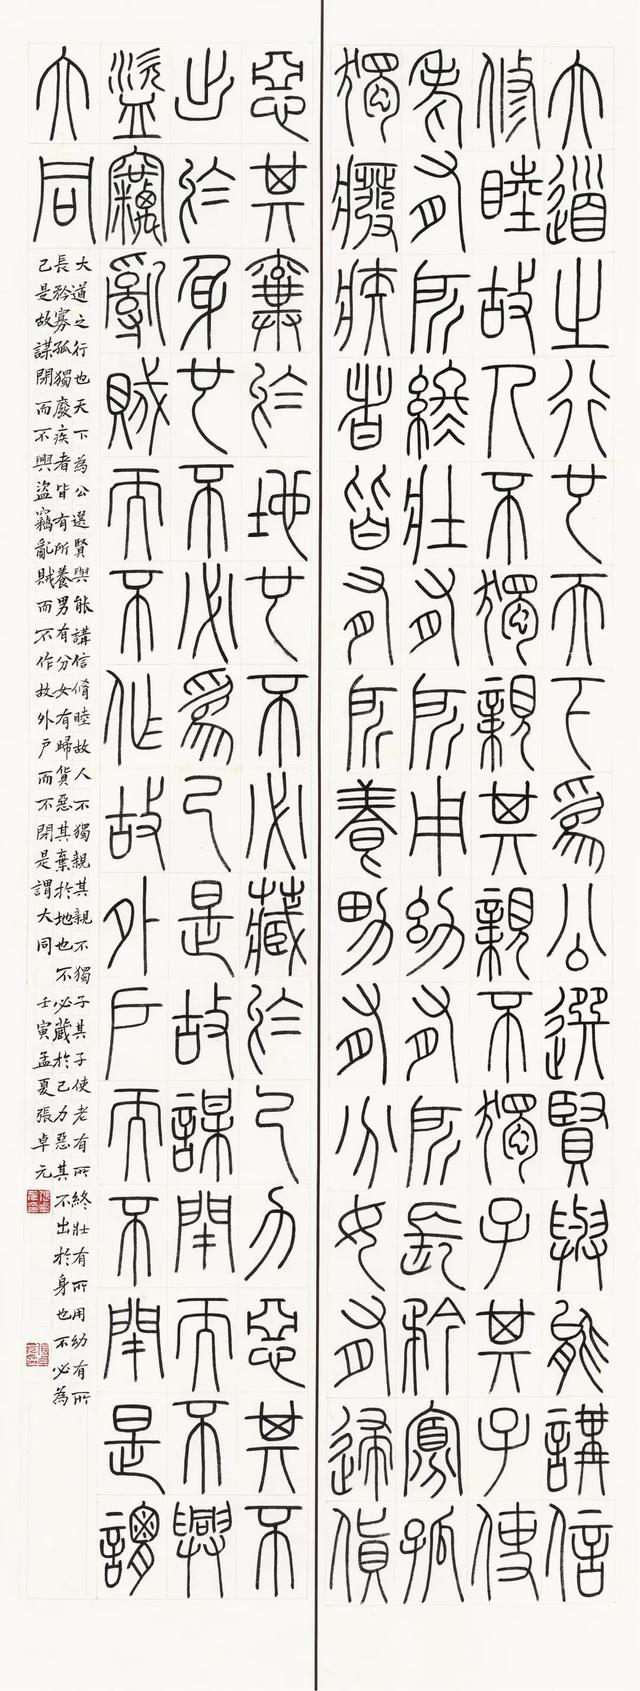 大道之行也天下為公選賢與能講信
修睦故人不獨親其親不獨子其子使
老有所終壯有所用幼有所長矜寡孤
獨廢疾者皆有所養男有分女有歸貨
惡其棄於地也不必藏於己力惡其不
出於身也不必為己是故謀閉而不興
盜竊亂賊而不作故外戶而不閉是謂
大同
大道之行也天下為公選賢與能講信脩睦故人不獨親其親不獨子其子使老有所終壯有所用幼有所
長矜寡孤獨廢疾者皆有所養男有分女有歸貨惡其棄於地也不必藏於己力惡其不出於身也不必為
己是故謀閉而不興盜竊亂賊而不作故外戶而不閉是謂大同 壬寅孟夏張卓元